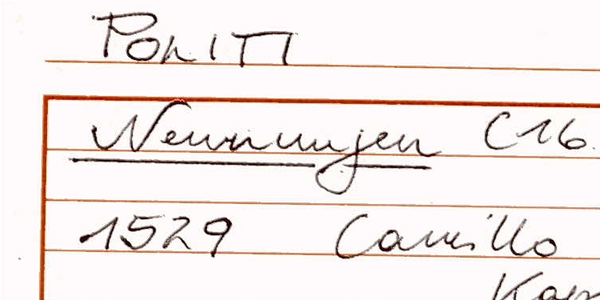 POLITI
Nennungen C16.
1529 Camillo
Kap